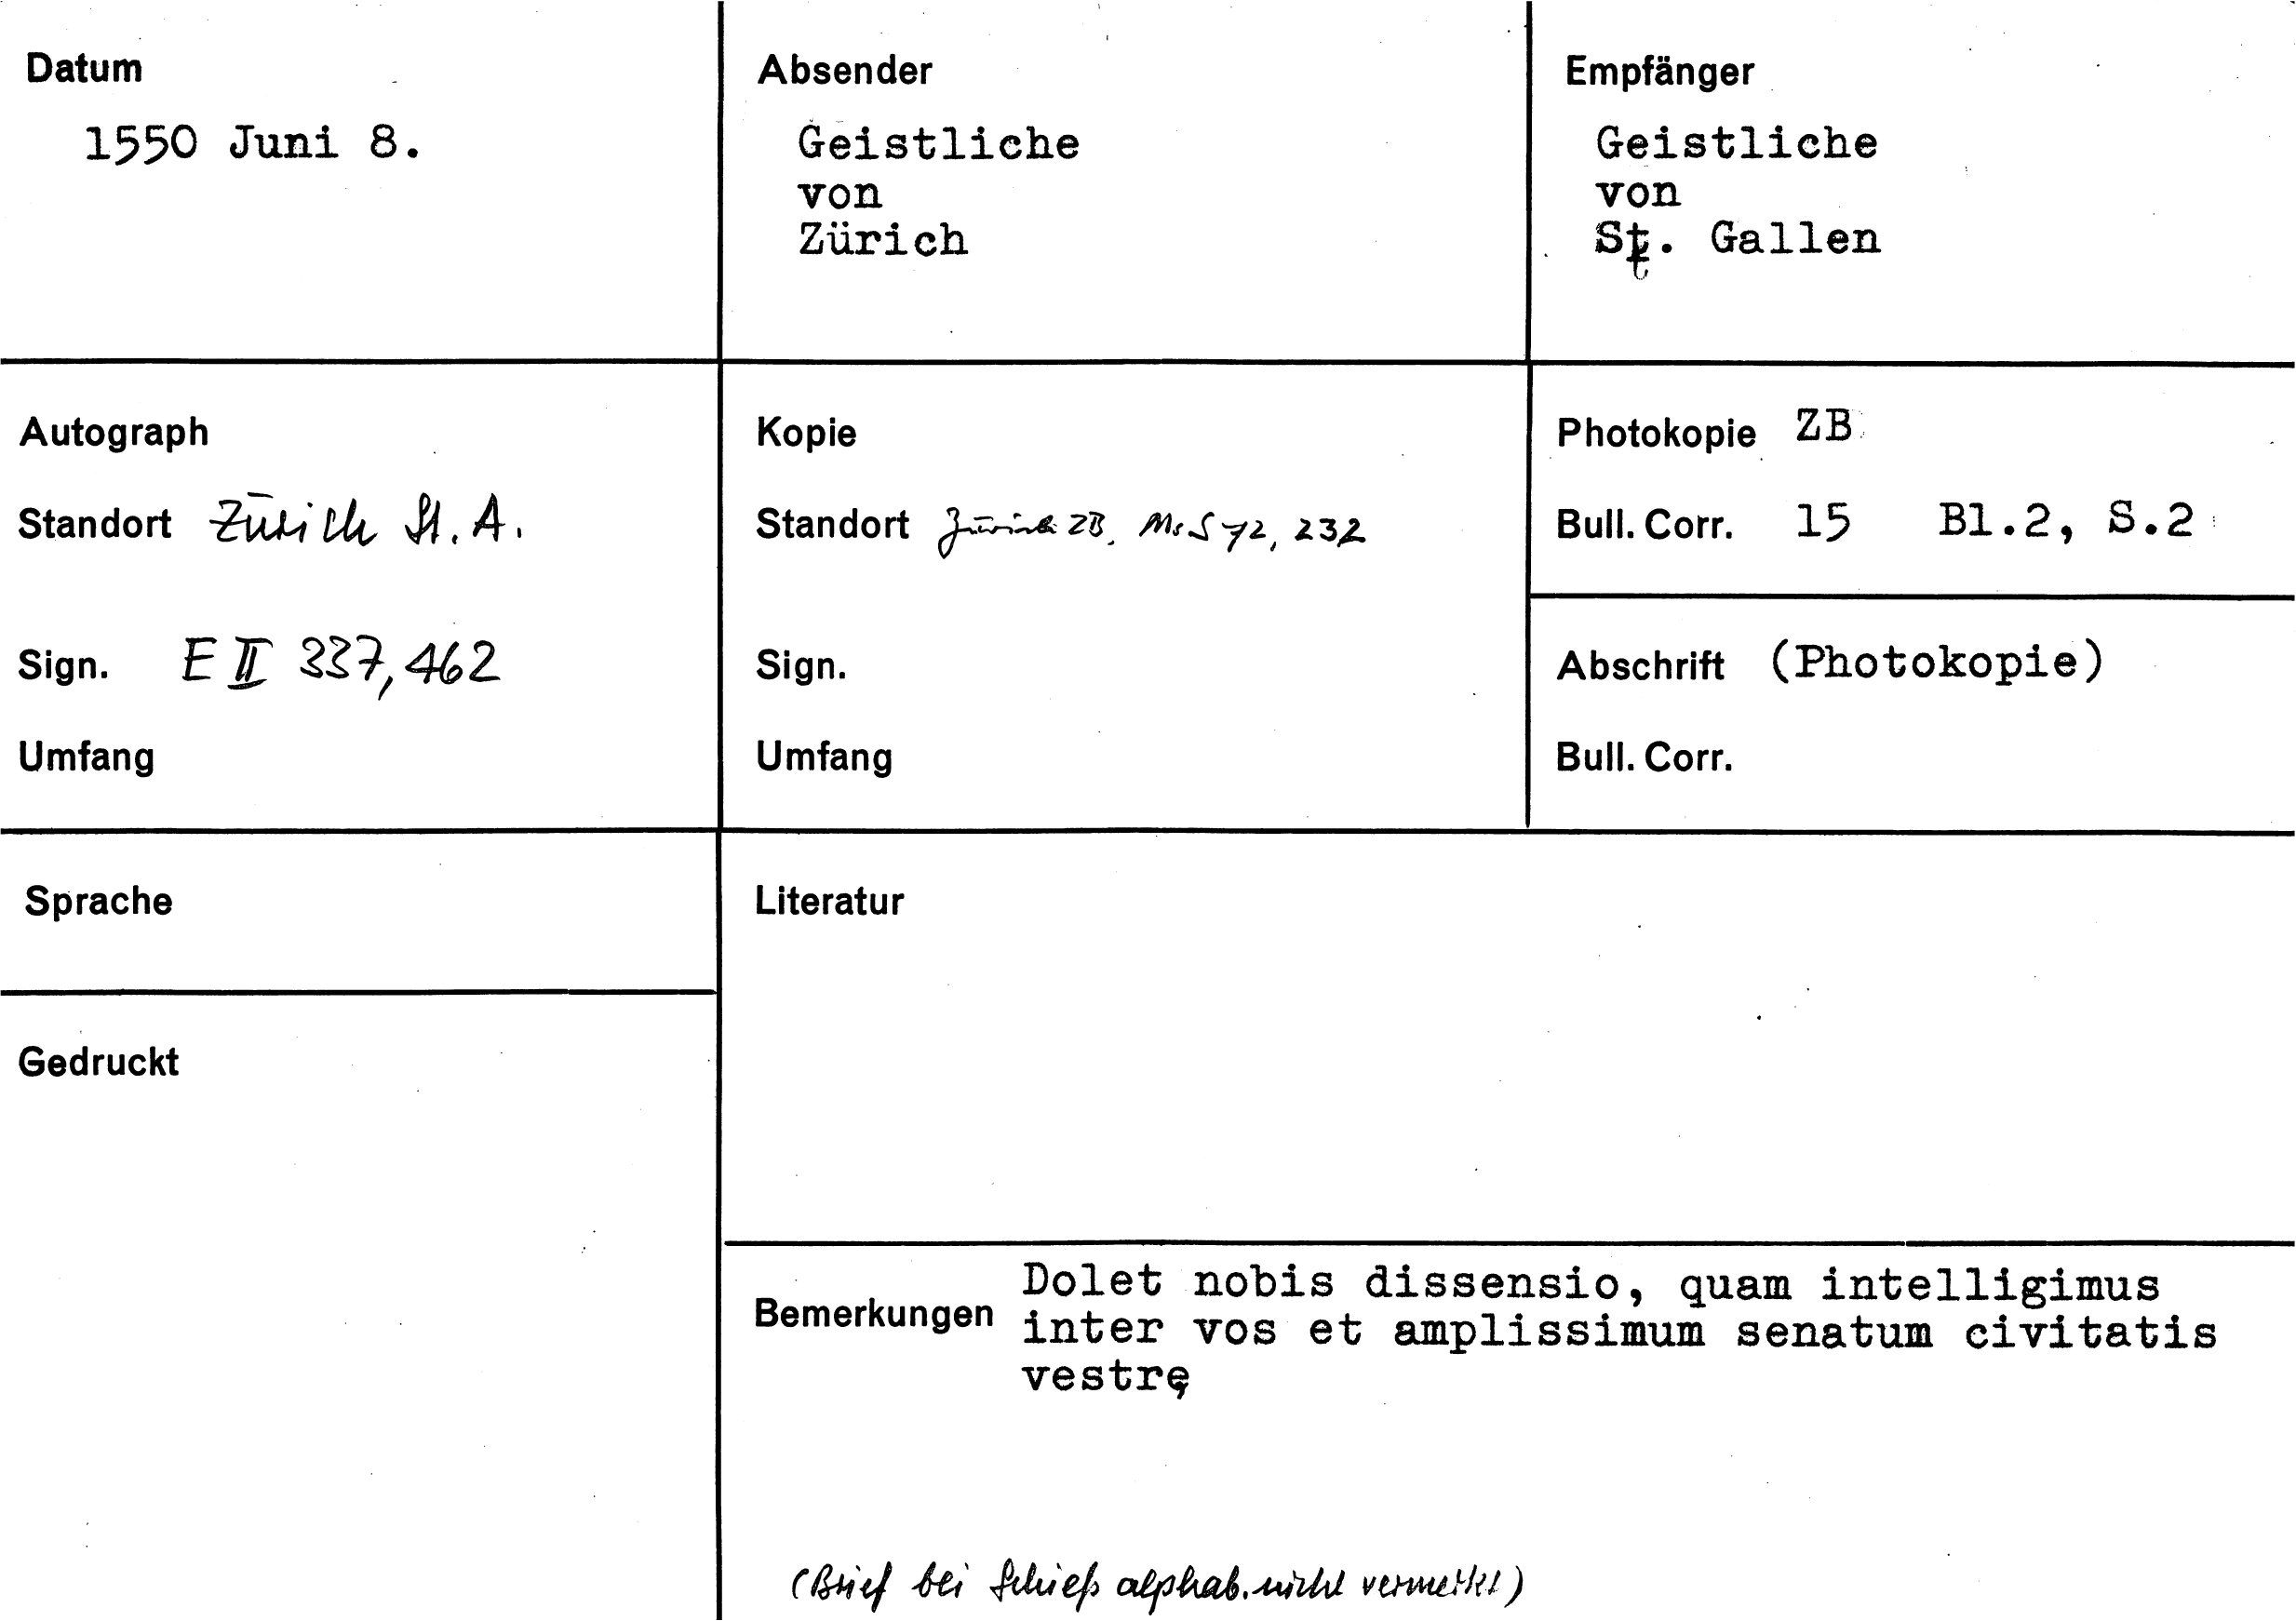 Datum
1550 Juni 8.
Absender
Geistliche
von
Zürich
Empfänger
Geistliche
von
St. Gallen
Autograph
Standort Zürich St. A.
Sign. E II 337, 462
Umfang
Kopie
Standort Zürich ZB, Ms S 72, 232
Sign.
Umfang
Photokopie ZB
Bull. Corr. 15 Bl.2, S.2
Abschrift (Photokopie)
Bull. Corr.
Sprache
Gedruckt
Literatur
Bemerkungen
Dolet nobis dissensio, quam intelligimus
inter vos et amplissimum senatum civitatis
vestrę
(Brief bei Schieß alphab. nicht vermerkt)